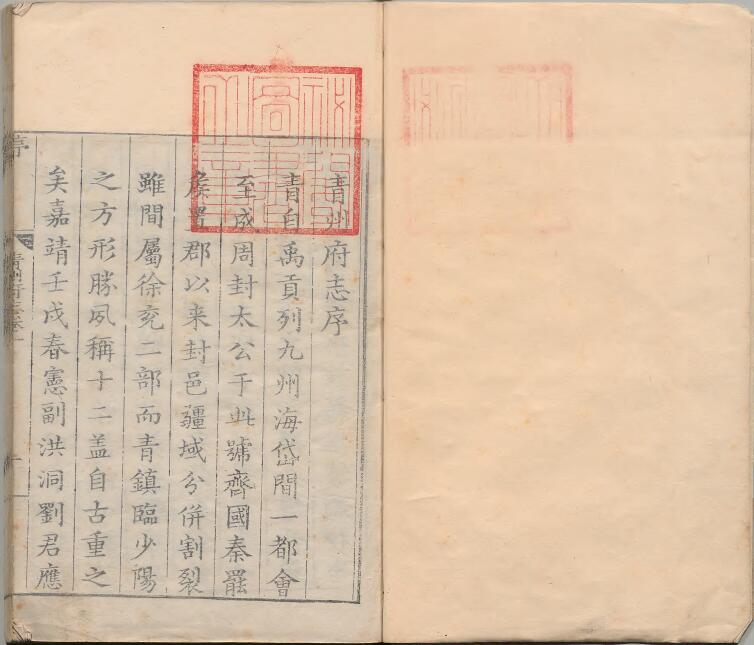 青州府志序
青自禹貢列九州海岱間一都會
至成周封太公于此號齊國秦罷
侯置郡以来封邑疆域分併割裂
雖間屬徐兖二部而青鎮臨少陽
之方形勝夙稱十二盖自古重之
矣嘉靖壬戌春憲副洪洞劉君應
青州府志卷一